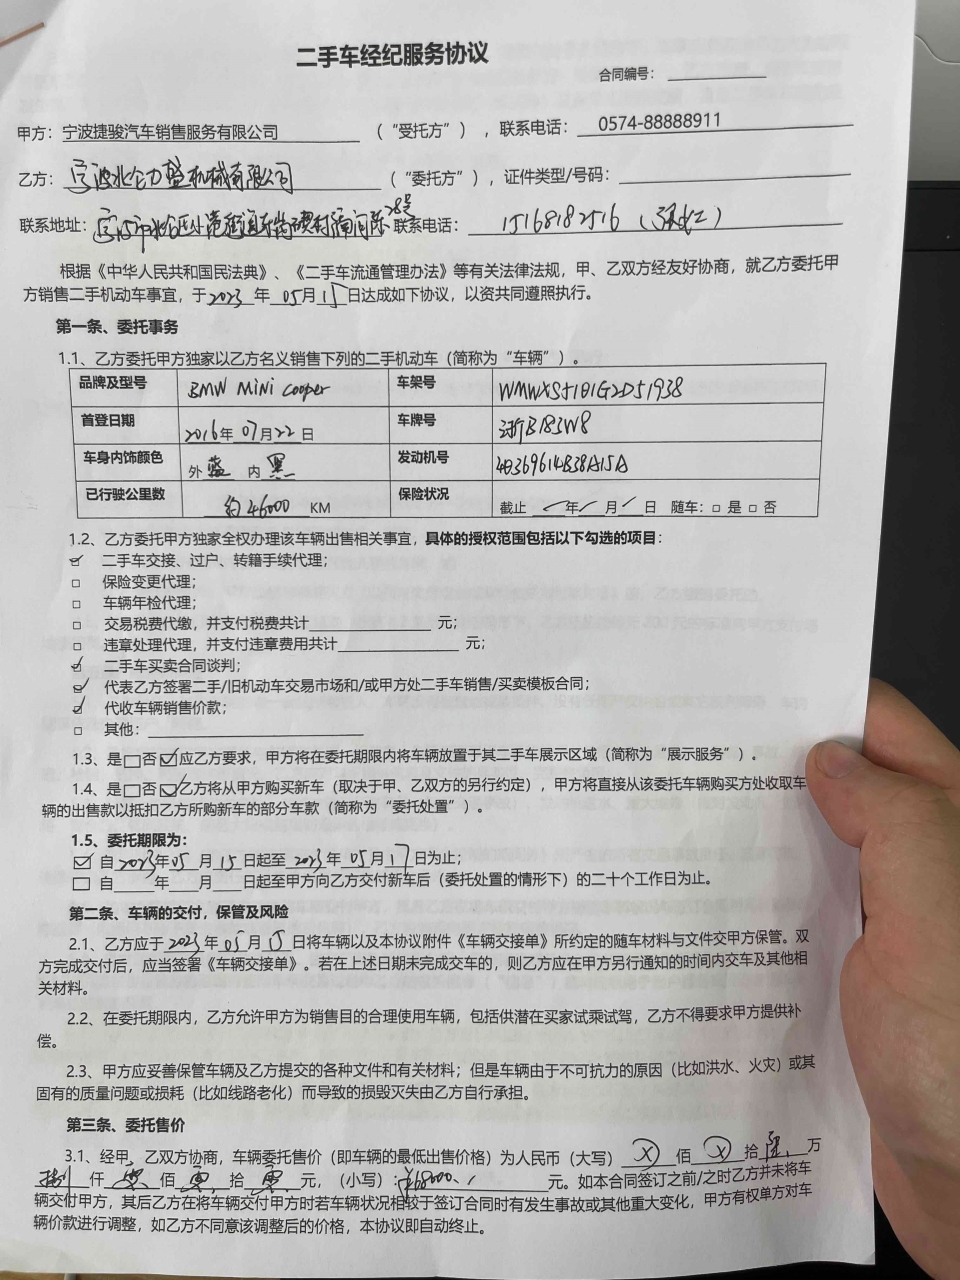 二手车经纪服务协议
合同编号：
甲方：宁波捷骏汽车销售服务有限公司 （“受托方”），联系电话：0574-88888911
乙方：宁波北仑力盛机械有限公司 （“委托方”），证件类型/号码：
联系地址：宁波市北仑区小港街道 28号 联系电话：15168182516
根据《中华人民共和国民法典》、《二手车流通管理办法》等有关法律法规，甲、乙双方经友好协商，就乙方委托甲
方销售二手机动车事宜，于2023年05月15日达成如下协议，以资共同遵照执行。
第一条、委托事务
1.1、乙方委托甲方独家以乙方名义销售下列的二手机动车（简称为“车辆”）。
品牌及型号 BMW MINI Cooper 车架号 WMWXS5101G2D51938
首登日期 2016年07月22日 车牌号 浙B183W8
车身内饰颜色 外 蓝 内 黑 发动机号
已行驶公里数 约46000 KM 保险状况 截止 年 月 日 随车：□ 是 □ 否
1.2、乙方委托甲方独家全权办理该车辆出售相关事宜，具体的授权范围包括以下勾选的项目：
☑ 二手车交接、过户、转籍手续代理；
□ 保险变更代理；
□ 车辆年检代理；
□ 交易税费代缴，并支付税费共计 元；
□ 违章处理代理，并支付违章费用共计 元；
☑ 二手车买卖合同谈判；
☑ 代表乙方签署二手/旧机动车交易市场和/或甲方处二手车销售/买卖模板合同；
☑ 代收车辆销售价款；
□ 其他：
1.3、是□否☑应乙方要求，甲方将在委托期限内将车辆放置于其二手车展示区域（简称为“展示服务”）。
1.4、是□否☑乙方将从甲方购买新车（取决于甲、乙双方的另行约定），甲方将直接从该委托车辆购买方处收取车
辆的出售款以抵扣乙方所购新车的部分车款（简称为“委托处置”）。
1.5、委托期限为：
☑ 自2023年05月15日起至2023年05月17日为止；
□ 自 年 月 日起至甲方向乙方交付新车后（委托处置的情形下）的二十个工作日为止。
第二条、车辆的交付，保管及风险
2.1、乙方应于2023年05月15日将车辆以及本协议附件《车辆交接单》所约定的随车材料与文件交甲方保管。双
方完成交付后，应当签署《车辆交接单》。若在上述日期未完成交车的，则乙方应在甲方另行通知的时间内交车及其他相
关材料。
2.2、在委托期限内，乙方允许甲方为销售目的合理使用车辆，包括供潜在买家试乘试驾，乙方不得要求甲方提供补
偿。
2.3、甲方应妥善保管车辆及乙方提交的各种文件和有关材料；但是车辆由于不可抗力的原因（比如洪水、火灾）或其
固有的质量问题或损耗（比如线路老化）而导致的损毁灭失由乙方自行承担。
第三条、委托售价
3.1、经甲、乙双方协商，车辆委托售价（即车辆的最低出售价格）为人民币（大写） ⓧ 佰 ⓧ 拾 陆 万
捌 仟 零 佰 零 拾 零 元，（小写）：¥68000 元。如本合同签订之前/之时乙方并未将车
辆交付甲方，其后乙方在将车辆交付甲方时若车辆状况相较于签订合同时有发生事故或其他重大变化，甲方有权单方对车
辆价款进行调整，如乙方不同意该调整后的价格，本协议即自动终止。